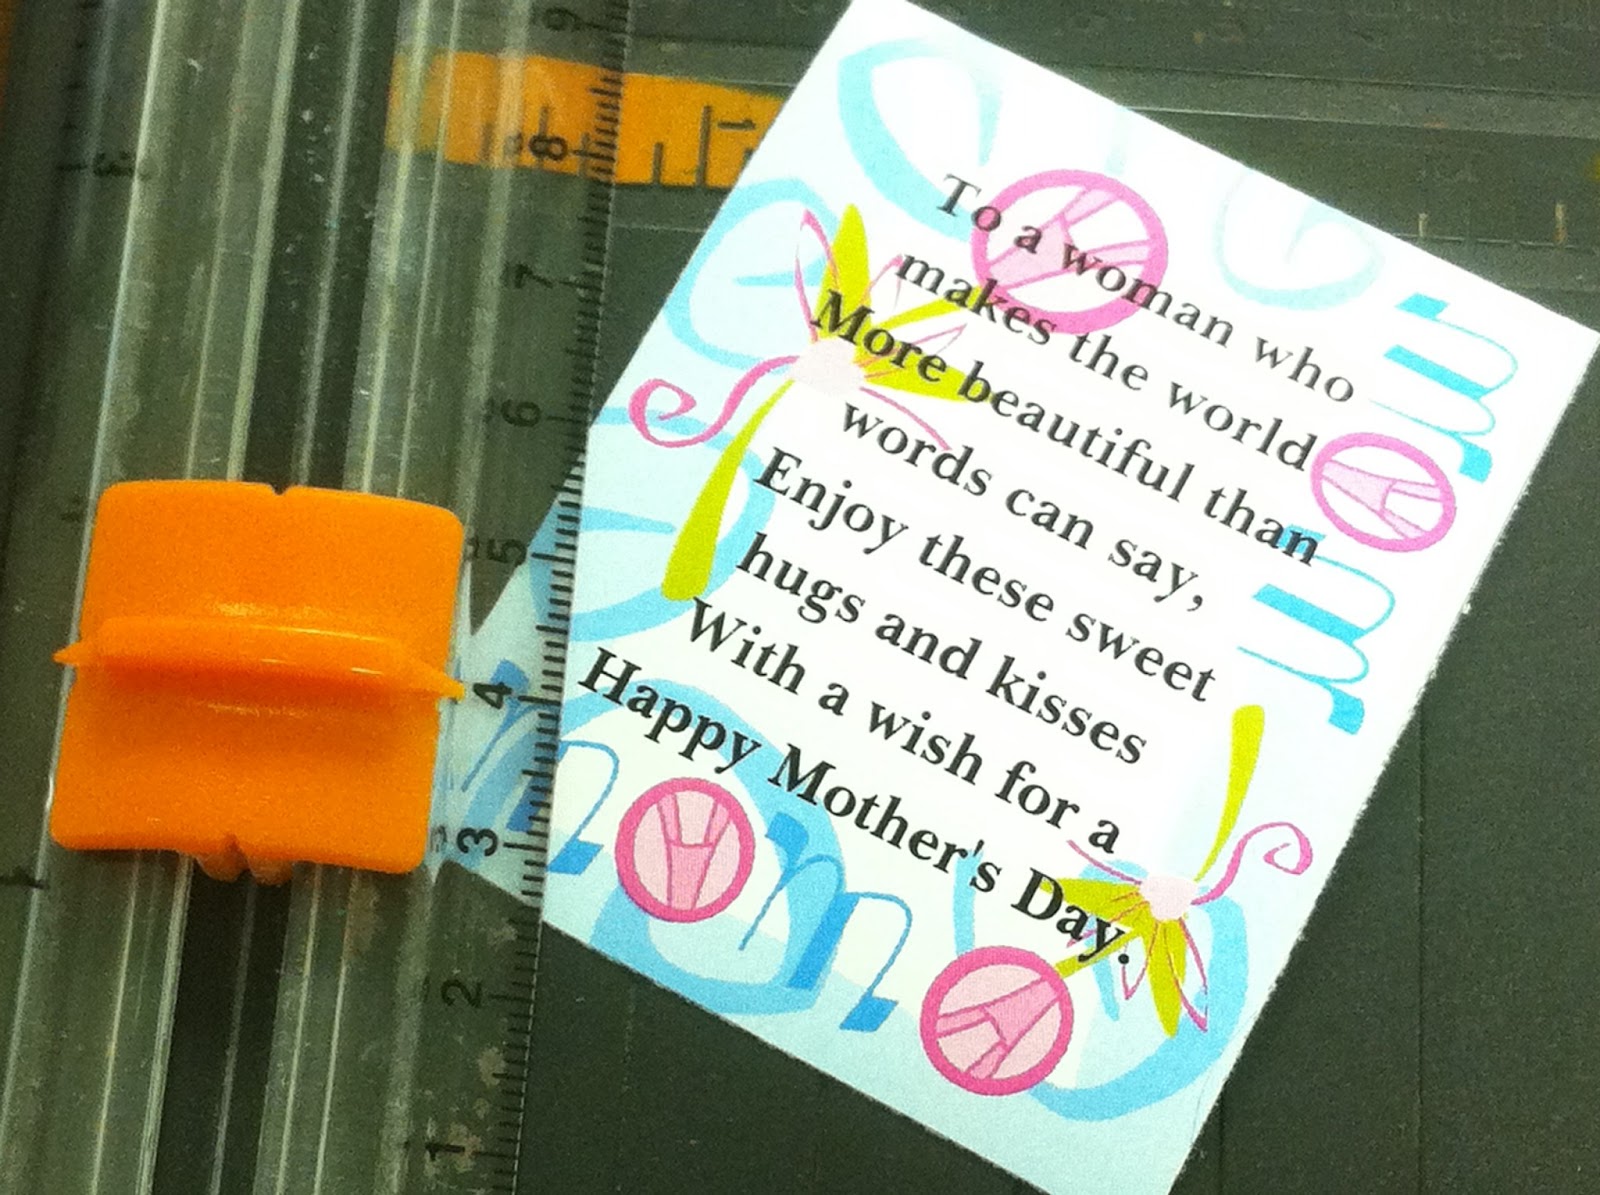 To a woman who
makes the world
More beautiful than
words can say,
Enjoy these sweet
hugs and kisses
With a wish for a
Happy Mother's Day.
9
8
7
6
5
4
3
2
1
1